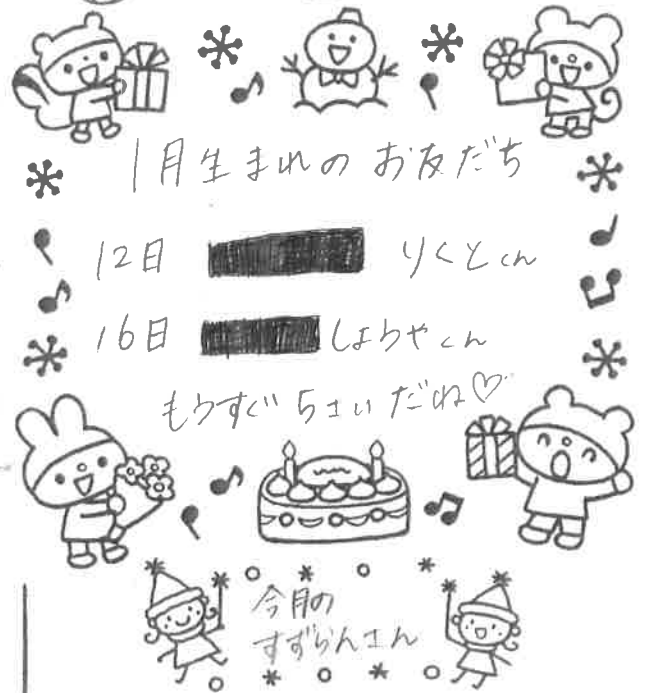 1月生まれのお友だち
12日 りくとくん
16日 しょうやくん
もうすぐ5さいだね♡
今月の
すずらんさん